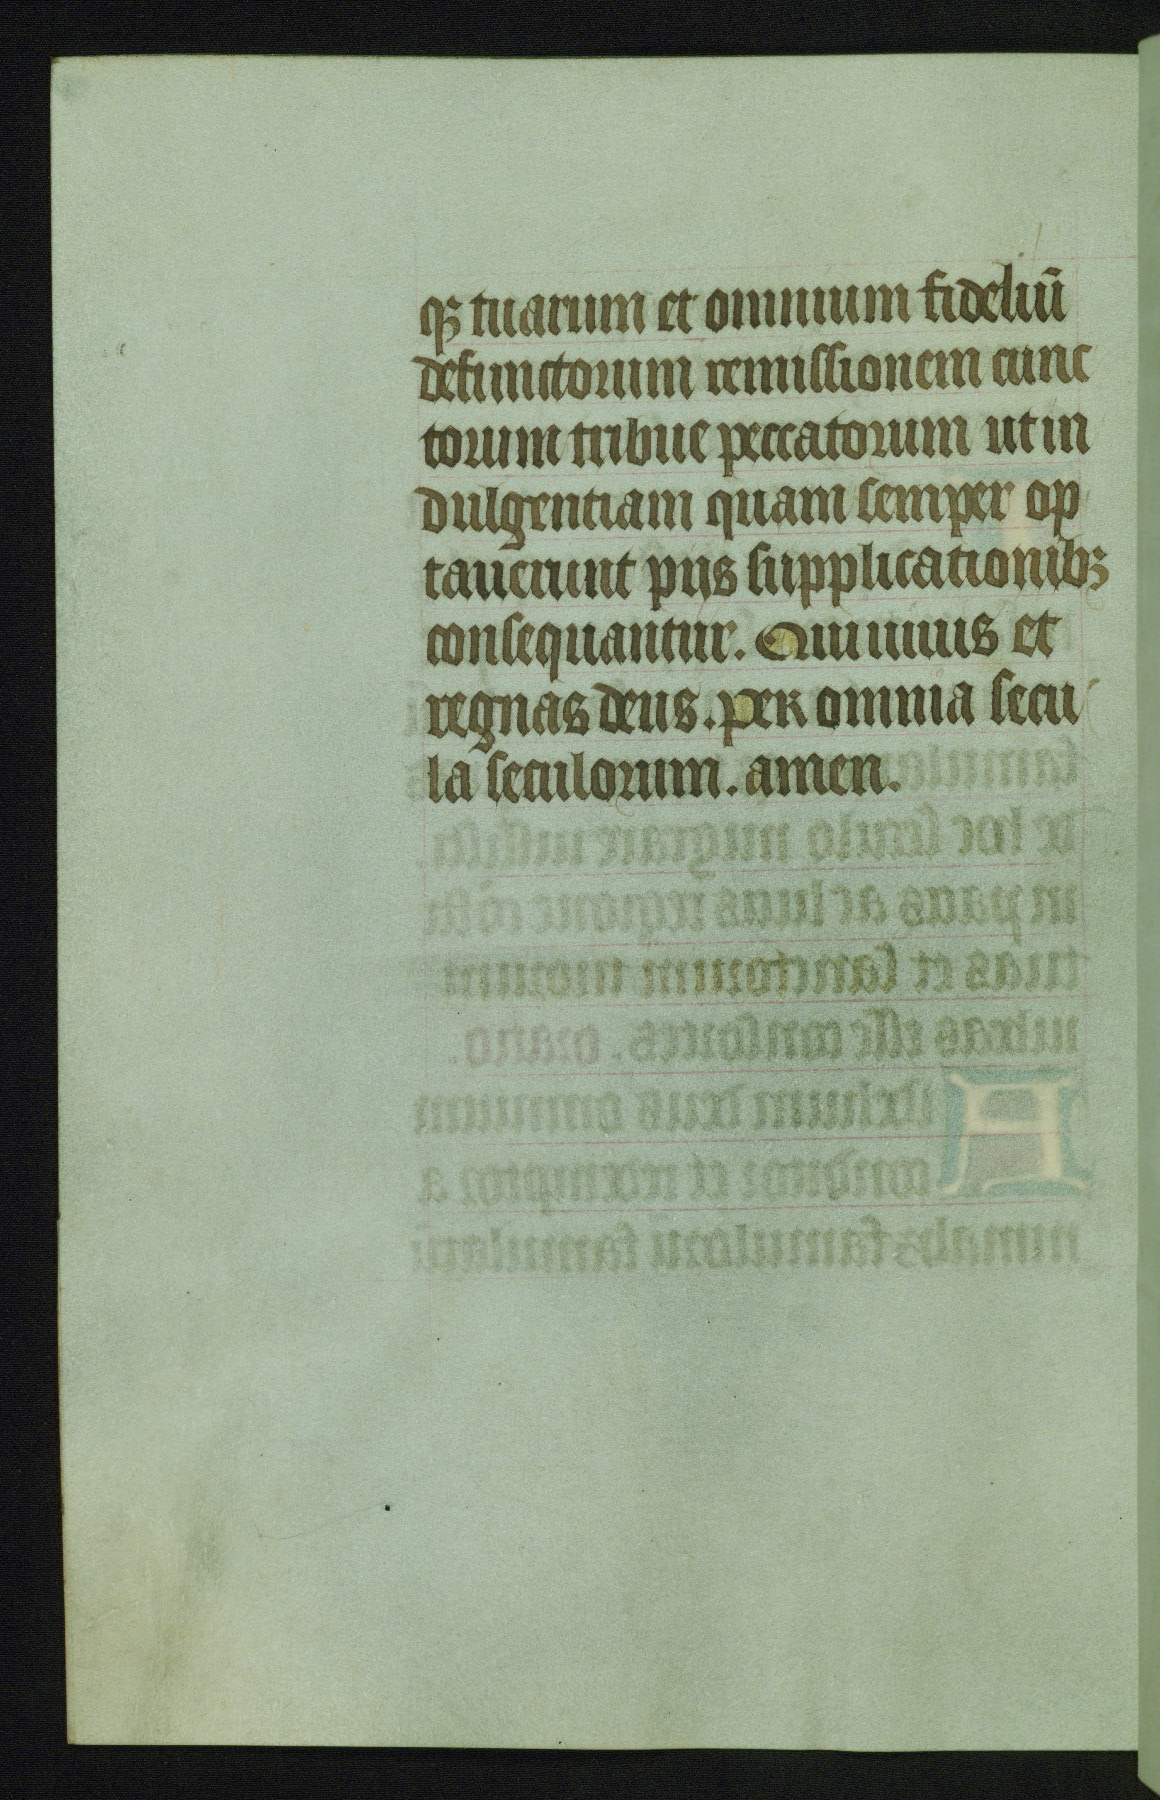 qꝫ tuarum et omnium fideliū
defunctorum remissionem cunc
torum tribue peccatorum ut in
dulgentiam quam semper op
tauerunt piis supplicationibꝫ
consequantur. Qui uiuis et
regnas deus. per omnia secu
la seculorum. amen.